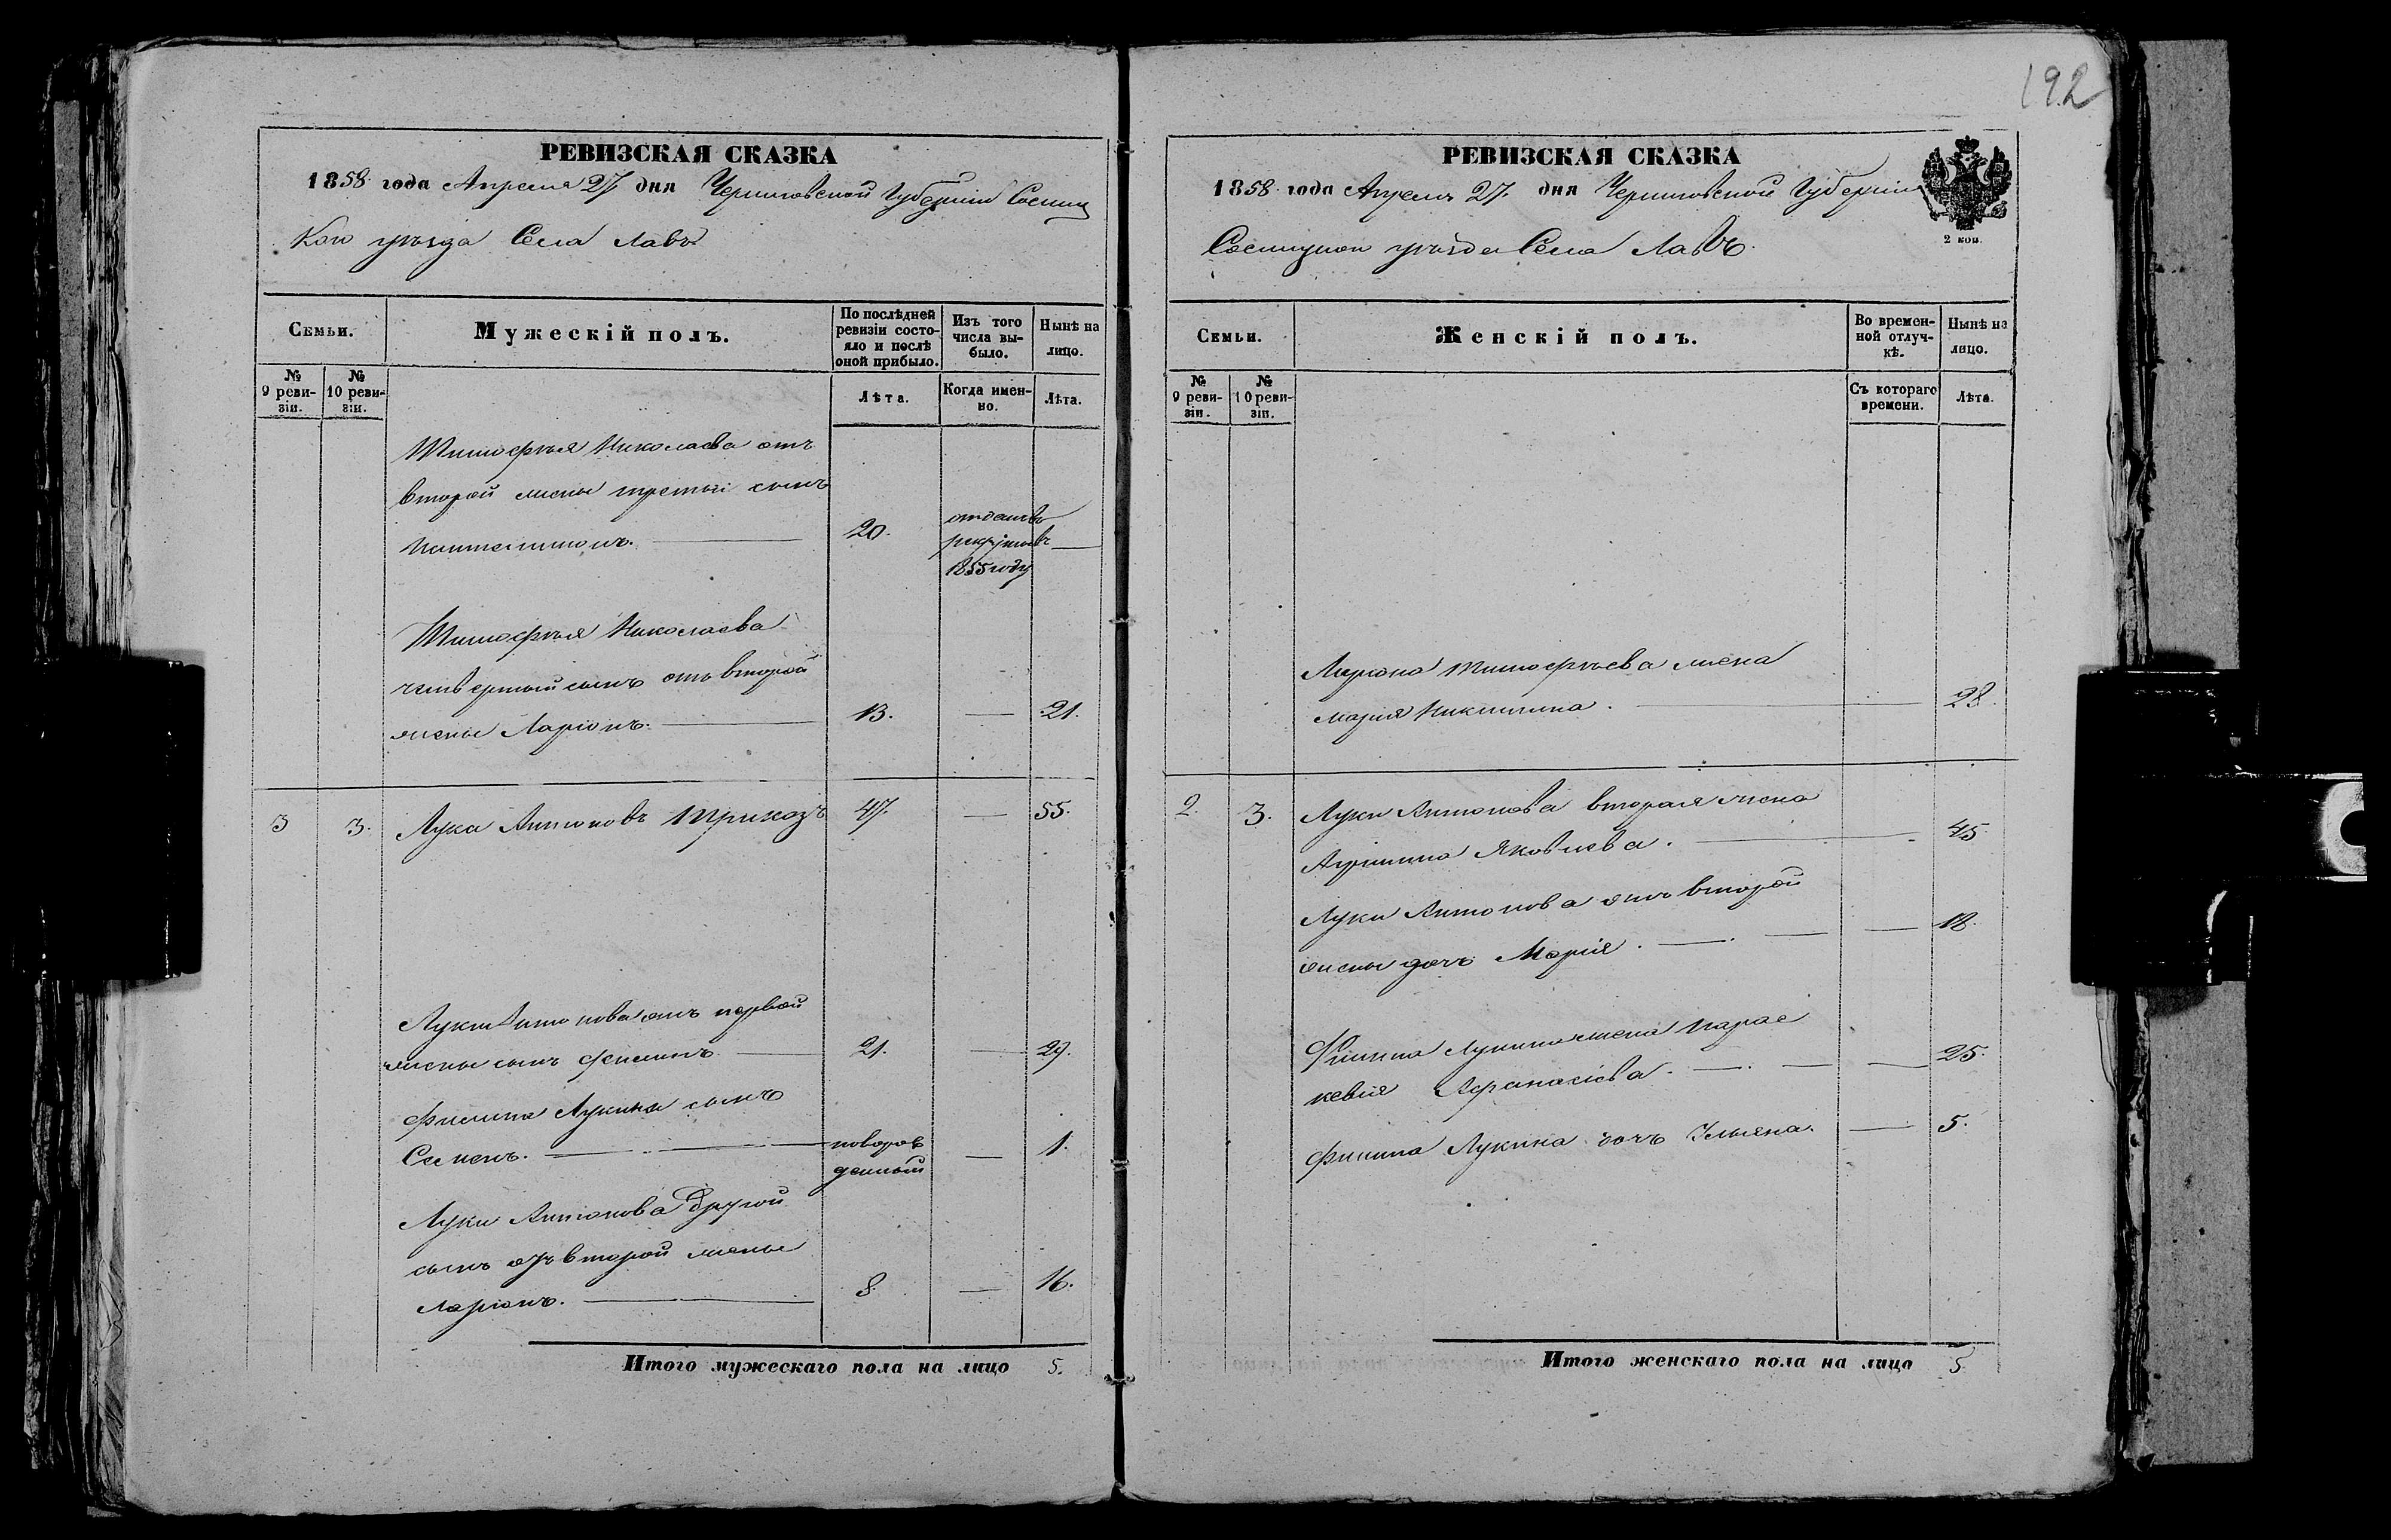 192
РЕВИЗСКАЯ СКАЗКА
1858 года Апреля 27 дня Черниговской Губернии Сосниц
кого уезда Села Лавъ
Семьи.
Мужескій полъ.
По послѣдней ревизіи состояло и послѣ оной прибыло.
Изъ того числа выбыло.
Нынѣ на лицо.
№ 9 ревизіи.
№ 10 ревизіи.
Лѣта.
Когда именно.
Лѣта.
Тимофѣя Николаева отъ
второй жены третий сынъ
20.
отданъ въ
рекруты въ
1855 году
Тимофѣя Николаева
четвертый сынъ отъ второй
жены Ларіонъ.
13.
21.
3
3.
Лука Антоновъ
47.
55.
Луки Антонова отъ первой
жены сынъ Филипъ
21.
29.
Филипа Лукина сынъ
Семенъ.
новорож
денный
1.
Луки Антонова другой
сынъ отъ второй жены
Ларіонъ.
8.
16.
Итого мужескаго пола на лицо 5.
РЕВИЗСКАЯ СКАЗКА
1858 года Апреля 27. дня Черниговской Губерніи
2 коп.
Сосницкого уезда Села Лавъ.
Семьи.
Женскій полъ.
Во временной отлучкѣ.
Нынѣ на лицо.
№ 9 ревизіи.
№ 10 ревизіи.
Съ котораго времени.
Лѣта.
Лариона Тимофѣева жена
Мария Никитина.
28.
2.
3.
Луки Антонова вторая жена
Яковлева.
45
Луки Антонова отъ второй
жены дочь Марія.
18.
Филипа Лукина жена Парас
кевія Афанасіева.
25.
Филипа Лукина дочь Ульяна.
5.
Итого женскаго пола на лицо 5.